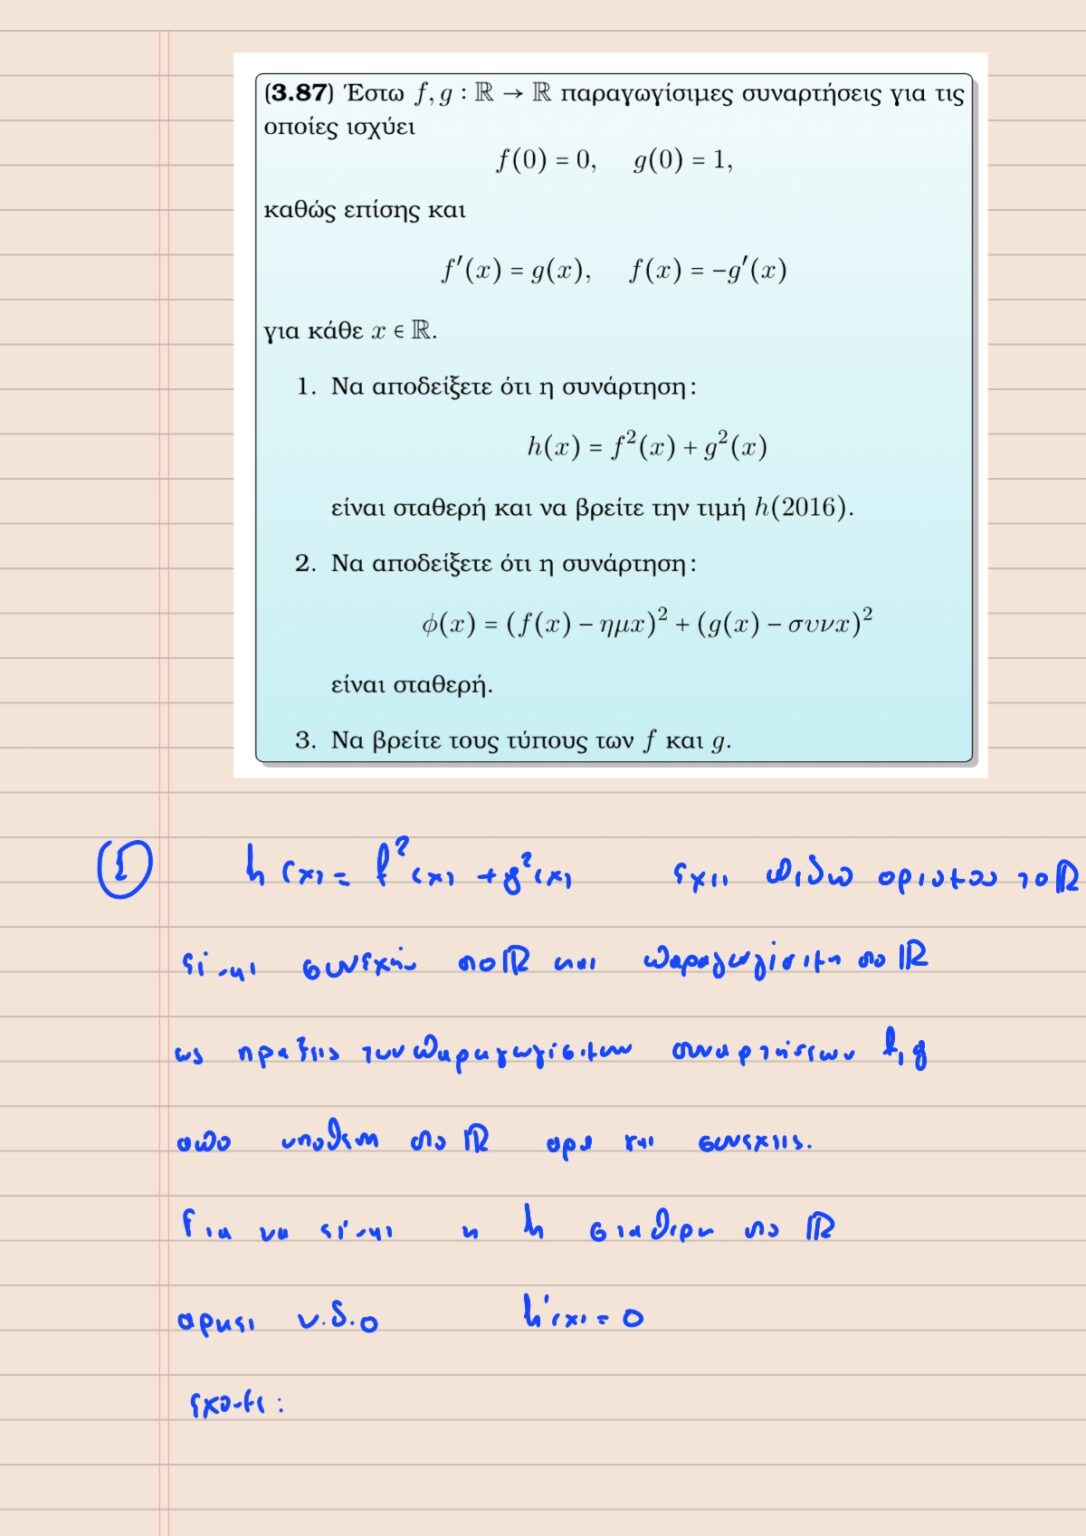 (3.87) Έστω f, g : ℝ → ℝ παραγωγίσιμες συναρτήσεις για τις
οποίες ισχύει
f(0) = 0, g(0) = 1,
καθώς επίσης και
f′(x) = g(x), f(x) = −g′(x)
για κάθε x ∈ ℝ.
1. Να αποδείξετε ότι η συνάρτηση:
h(x) = f²(x) + g²(x)
είναι σταθερή και να βρείτε την τιμή h(2016).
2. Να αποδείξετε ότι η συνάρτηση:
ϕ(x) = (f(x) − ημx)² + (g(x) − συνx)²
είναι σταθερή.
3. Να βρείτε τους τύπους των f και g.
① h(x) = f²(x) + g²(x) έχει πεδίο ορισμού το ℝ
είναι συνεχής στο ℝ και παραγωγίσιμη στο ℝ
ως πράξεις των παραγωγίσιμων συναρτήσεων f, g
από υπόθεση στο ℝ αρα και συνεχεις.
Για να είναι η h σταθερη στο ℝ
αρκει ν.δ.ο h′(x) = 0
εχουμε: